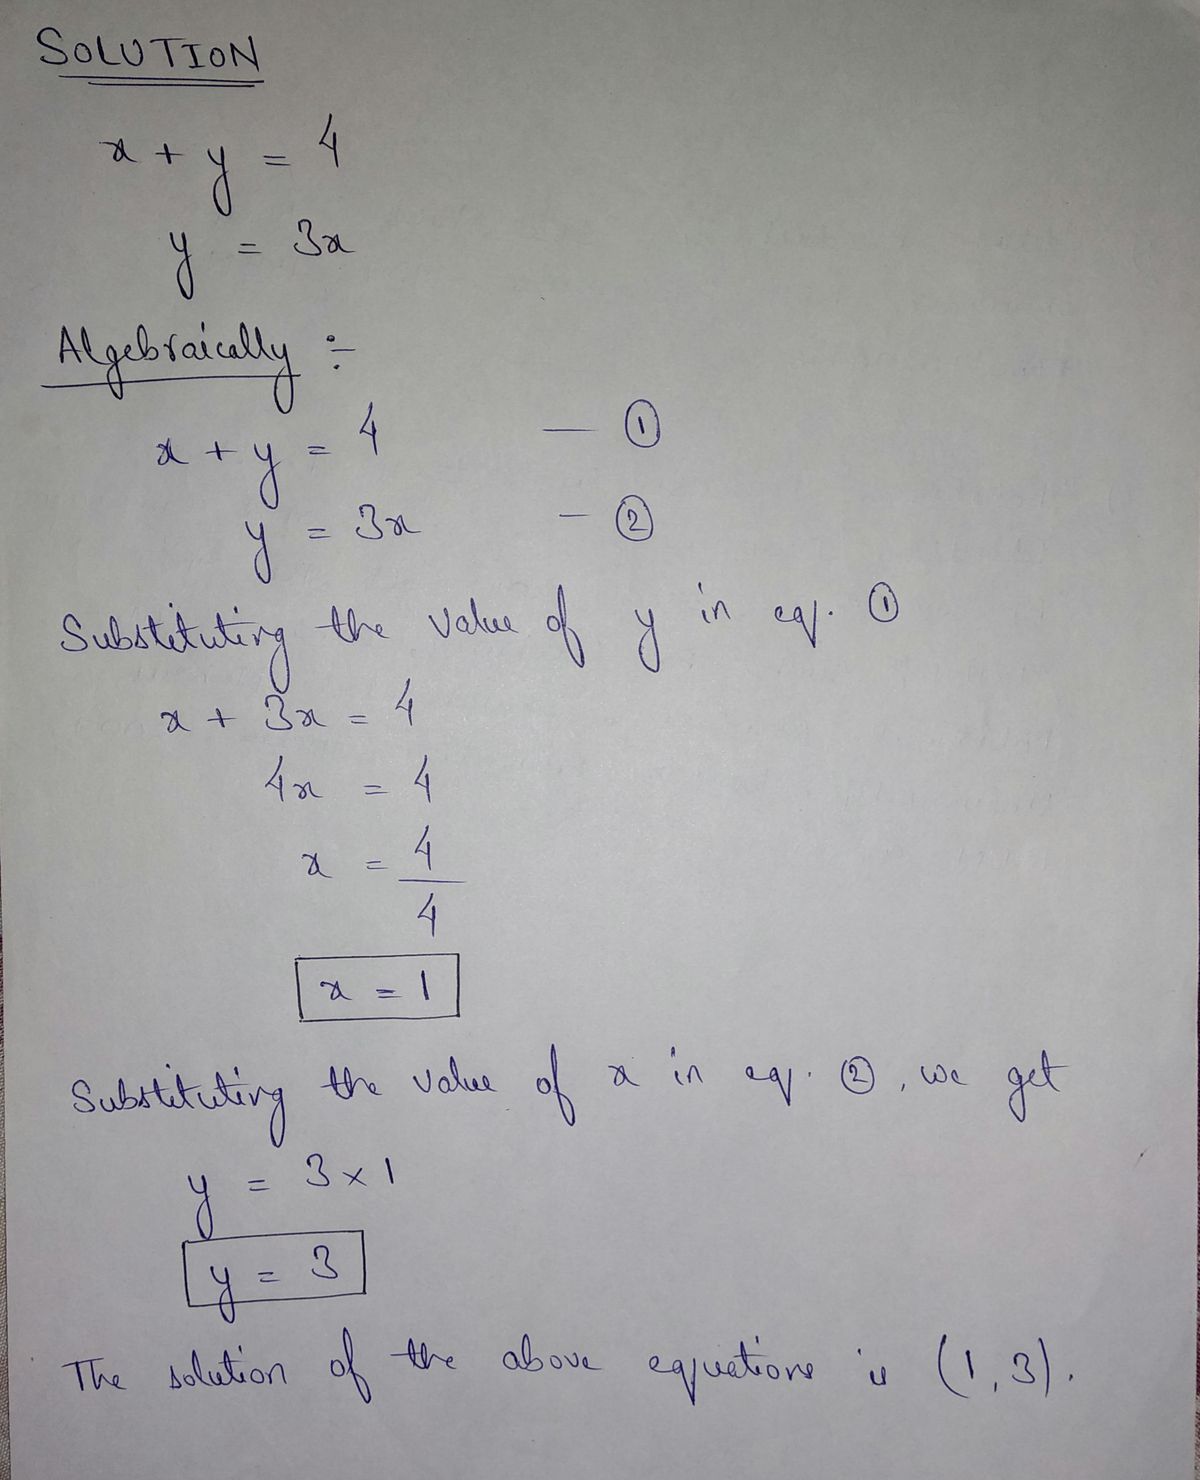 SOLUTION
x + y = 4
y = 3x
Algebraically :-
x + y = 4 — ①
y = 3x — ②
Substituting the value of y in eq. ①
x + 3x = 4
4x = 4
x = 4
4
x = 1
Substituting the value of x in eq. ②, we get
y = 3 × 1
y = 3
The solution of the above equations is (1, 3).